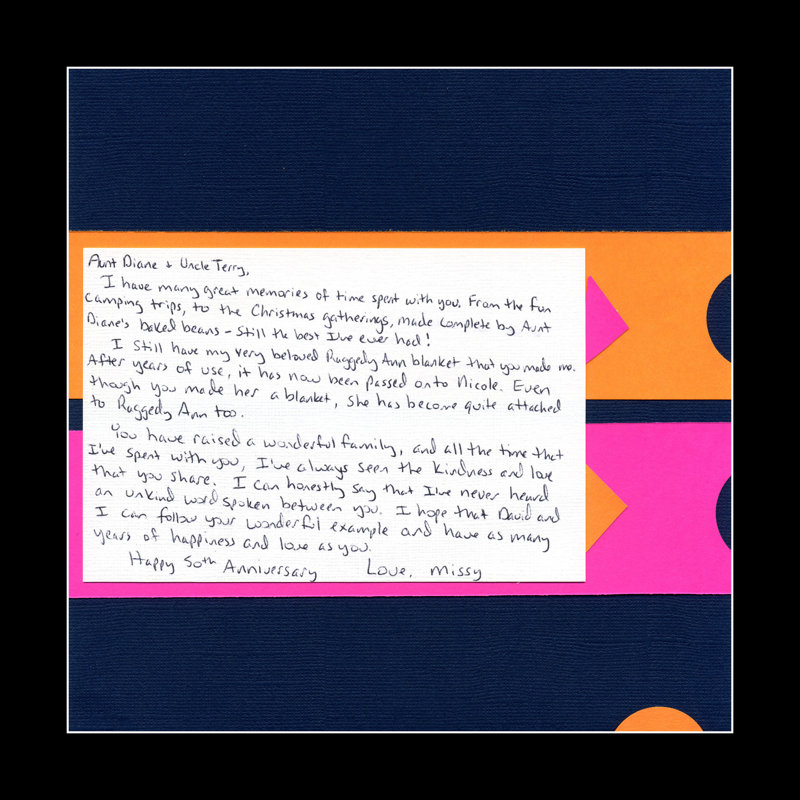 Aunt Diane + Uncle Terry,
I have many great memories of time spent with you. From the fun
camping trips, to the Christmas gatherings, made complete by Aunt
Diane's baked beans - still the best I've ever had!
I still have my very beloved Raggedy Ann blanket that you made me.
After years of use, it has now been passed onto Nicole. Even
though you made her a blanket, she has become quite attached
to Raggedy Ann too.
You have raised a wonderful family, and all the time that
I've spent with you, I've always seen the kindness and love
that you share. I can honestly say that I've never heard
an unkind word spoken between you. I hope that David and
I can follow your wonderful example and have as many
years of happiness and love as you.
Happy 50th Anniversary Love, Missy